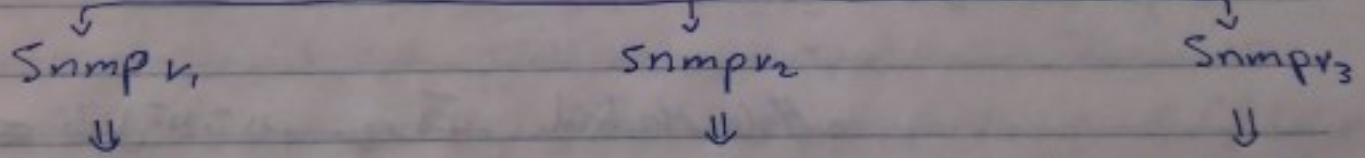 Snmpv₁ Snmpv₂ Snmpv₃